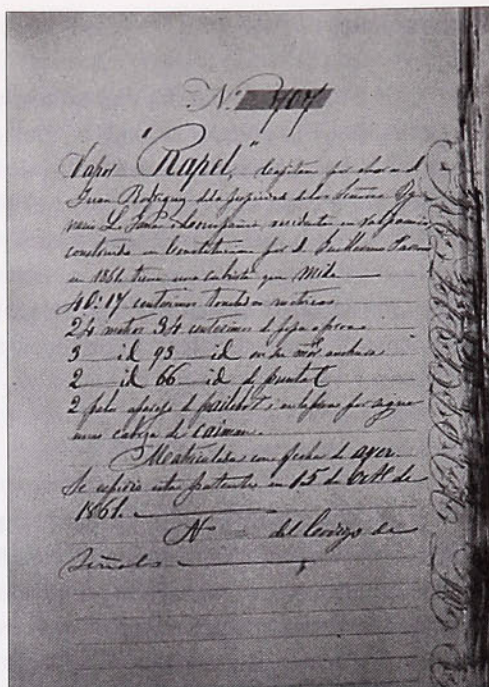 Nº 707
Vapor "Rapel", Capitan por ahora d.
Juan Rodriguez de la propiedad de los Señores
i Compañia, residente en Valparaiso
construido en Constitucion por d. Guillermo
en 1861 tiene una cubierta que mide
40:17 centesimos toneladas metricas
24 metros 34 centesimos de popa a proa
3 id 93 id en su mor anchura
2 id 66 id de puntal
2 palos aparejo de pailebot i en la proa por signo
una cabeza de caiman.
Matriculada con fecha de ayer.
Se espidio esta patente en 15 de de
1861.
N del Codigo de
Señales